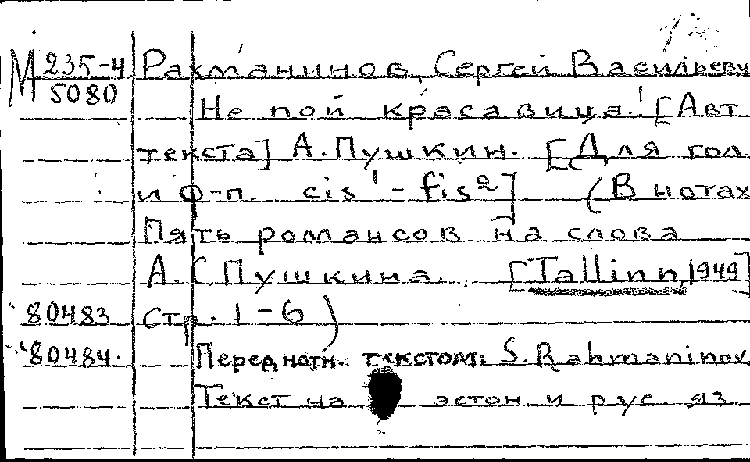 М 235-4 Рахманинов, Сергей Васильевич
5080 Не пой красавица! [Авт.
текста] А. Пушкин. [Для гол.
и ф-п. cis¹-fis²] (В нотах
Пять романсов на слова
А. Пушкина. [Tallinn, 1949]
80483 стр. 1-6)
80484. Перед нотн. текстом: S. Rahmaninov.
Текст на эстон. и рус. яз.